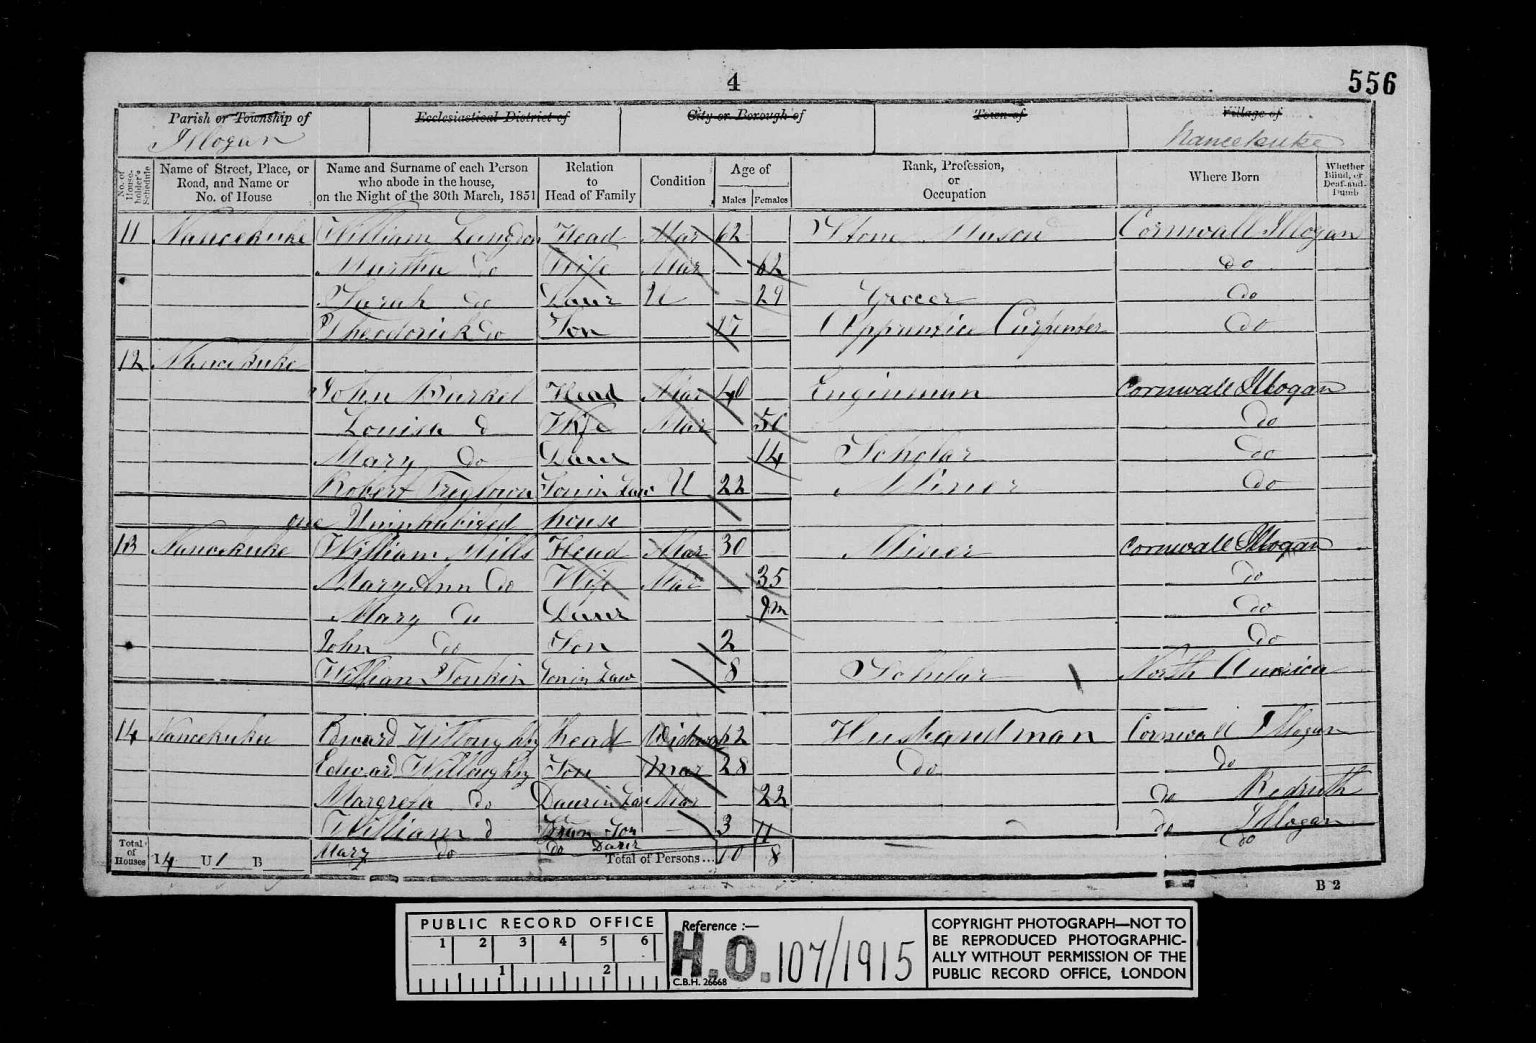 4
556
Parish or Township of
Illogan
Ecclesiastical District of
City or Borough of
Town of
Village of
Nancekuke
No. of House-holder's Schedule
Name of Street, Place, or Road, and Name or No. of House
Name and Surname of each Person who abode in the house, on the Night of the 30th March, 1851
Relation to Head of Family
Condition
Age of
Males Females
Rank, Profession, or Occupation
Where Born
Whether Blind, or Deaf-and-Dumb
11 Nancekuke William Head Mar 62 Stone Mason Cornwall Illogan
Martha Do Wife Mar 62 do
Sarah Do Daur U 29 Grocer do
Theoderick Do Son 17 Carpenter do
12 Nancekuke
John Head Mar 40 Engineman Cornwall Illogan
Louisa d Wife Mar 50 do
Mary Do Daur 14 Scholar do
Robert Treglown Son in Law U 22 Miner do
one Uninhabited house
13 Nancekuke William Mills Head Mar 30 Miner Cornwall Illogan
Mary Ann Do Wife Mar 35 do
Mary Do Daur 9m do
John Do Son 2 do
William Tonkin Son in Law 8 Scholar North America
14 Nancekuke Edward Willoughby head 62 Husbandman Cornwall Illogan
Edward Willoughby Son Mar 28 Do do
Margreta do Daur in Law Mar 22 do Redruth
William d Gran Son 3 do Illogan
Mary do do Daur 11 do
Total of Houses 14 U 1 B Total of Persons... 10 8
B 2
PUBLIC RECORD OFFICE
1 2 3 4 5 6
1 2
Reference :—
H.O. 107/1915
C.B.H. 26668
COPYRIGHT PHOTOGRAPH—NOT TO
BE REPRODUCED PHOTOGRAPHIC-
ALLY WITHOUT PERMISSION OF THE
PUBLIC RECORD OFFICE, LONDON